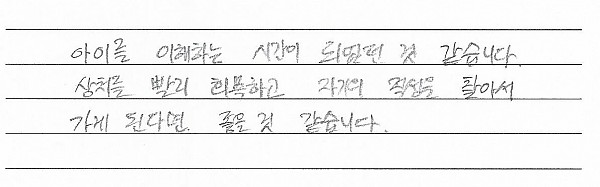 아이를 이해하는 시간이 되었던 것 같습니다.
상처를 빨리 회복하고 자기의 적성을 찾아서
가게 된다면. 좋을 것 같습니다.